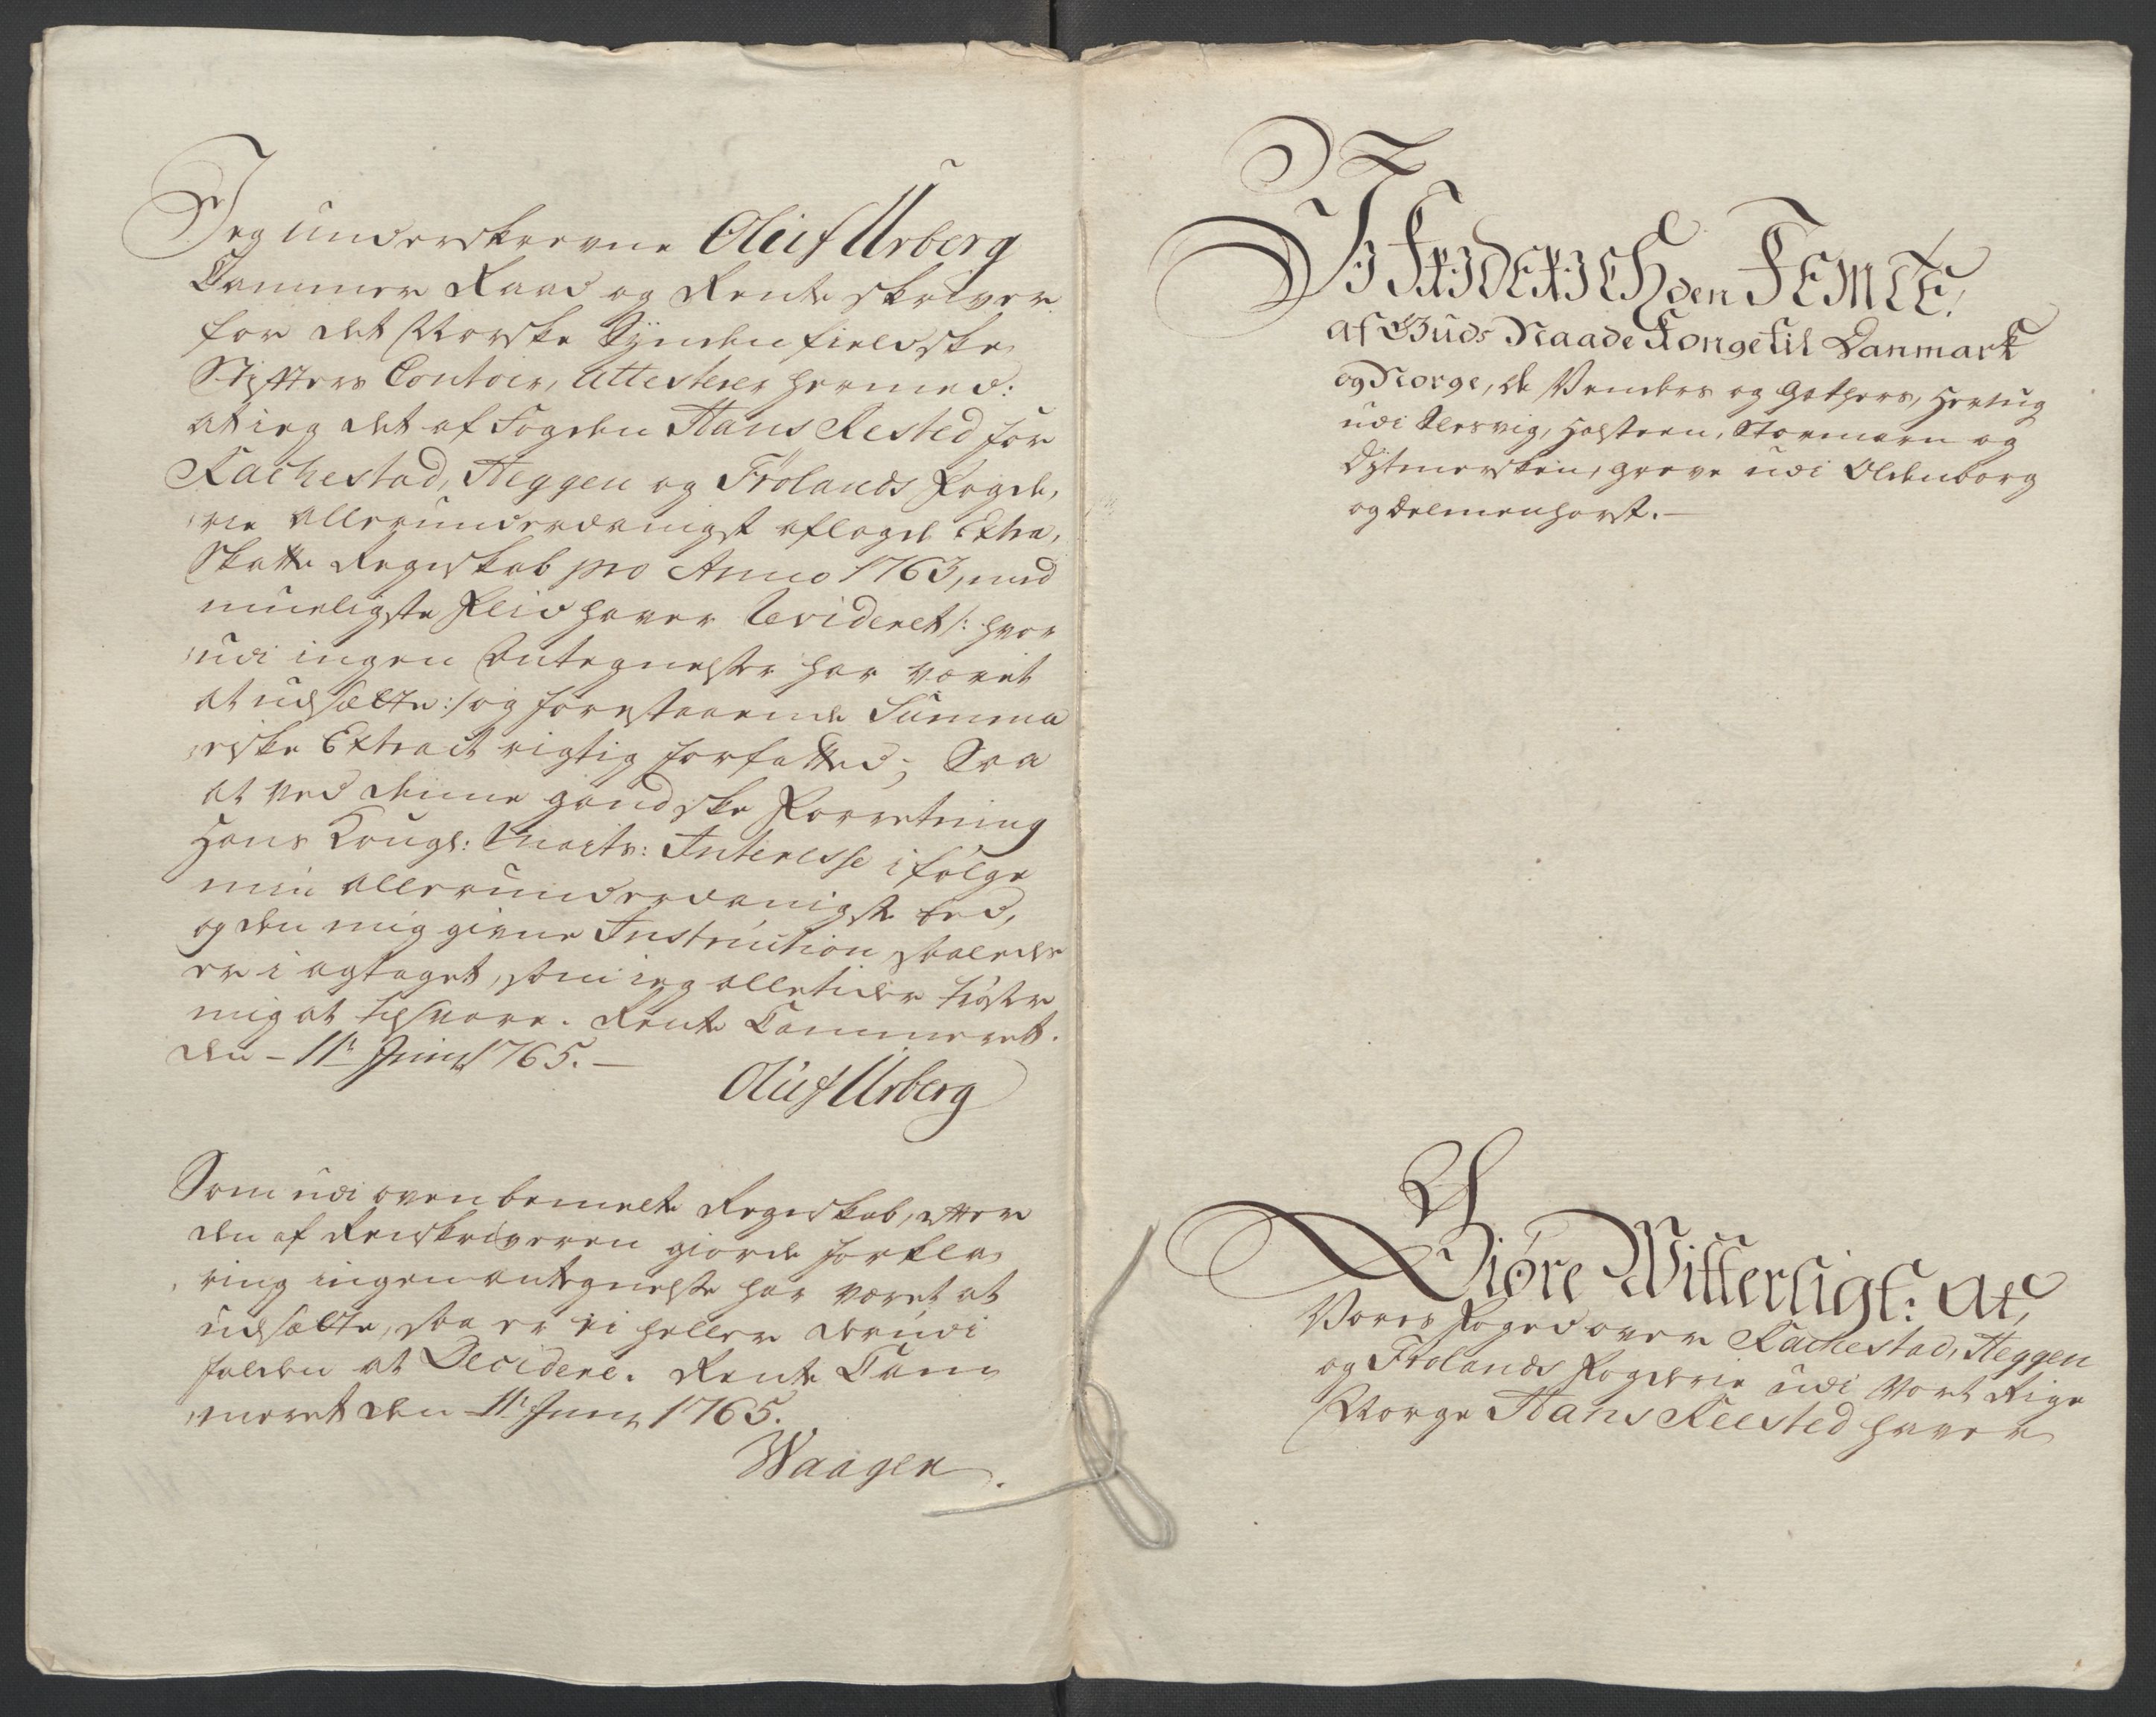 Jeg underskrevne Oluf Urberg
Cammer Raad og Rente skriver
for det Norske Synden fieldske
Stifters Contoir, Attesterer hermed:
at ieg det af Fogden Hans Rested for
Rachestad, Heggen og Frølands Fogde,
rie allerunderdanigst aflagde Extra,
Skatte Regnskab pro Anno 1763, med
mueligste Fliid haver Revideret /: hvor
udi ingen Antegnelser har været
at udsætte :/ og forestaaende Summa
riske Extract rigtig forfatted; Saa
at ved denne gandske Forretning
Hans Kongl: Mayts: Interesse i følge
min allerunderdanigste Eed,
og den mig givne Instruction saaledes
er i agtaget, som ieg alletider trøster
mig at tilsvare. Rente Cammeret.
den - 11te Junii 1765. -
Oluf Urberg
Som udi ovenbemelte Regnskab, efter
den af Renskriveren giorde forkla,
ring ingen antegnelse har været at
udsætte, saa er ei heller derudi
falden at Decidere. Rente Cam
meret den 11te Junii 1765.
Waagen.
Vi FRIDERICH den FEMTE,
af Guds Naade Konge til Danmark
og Norge, de Venders og Gothers, Hertug
udi Slesvig, Holsteen, Stormarn og
Dytmersken, Greve udi Oldenborg
og Delmenhorst. -
Giøre Witterligt: At,
Vores Foged over Rachestad, Heggen
og Frølands Fogderie udi Vort Rige
Norge Hans Reested haver